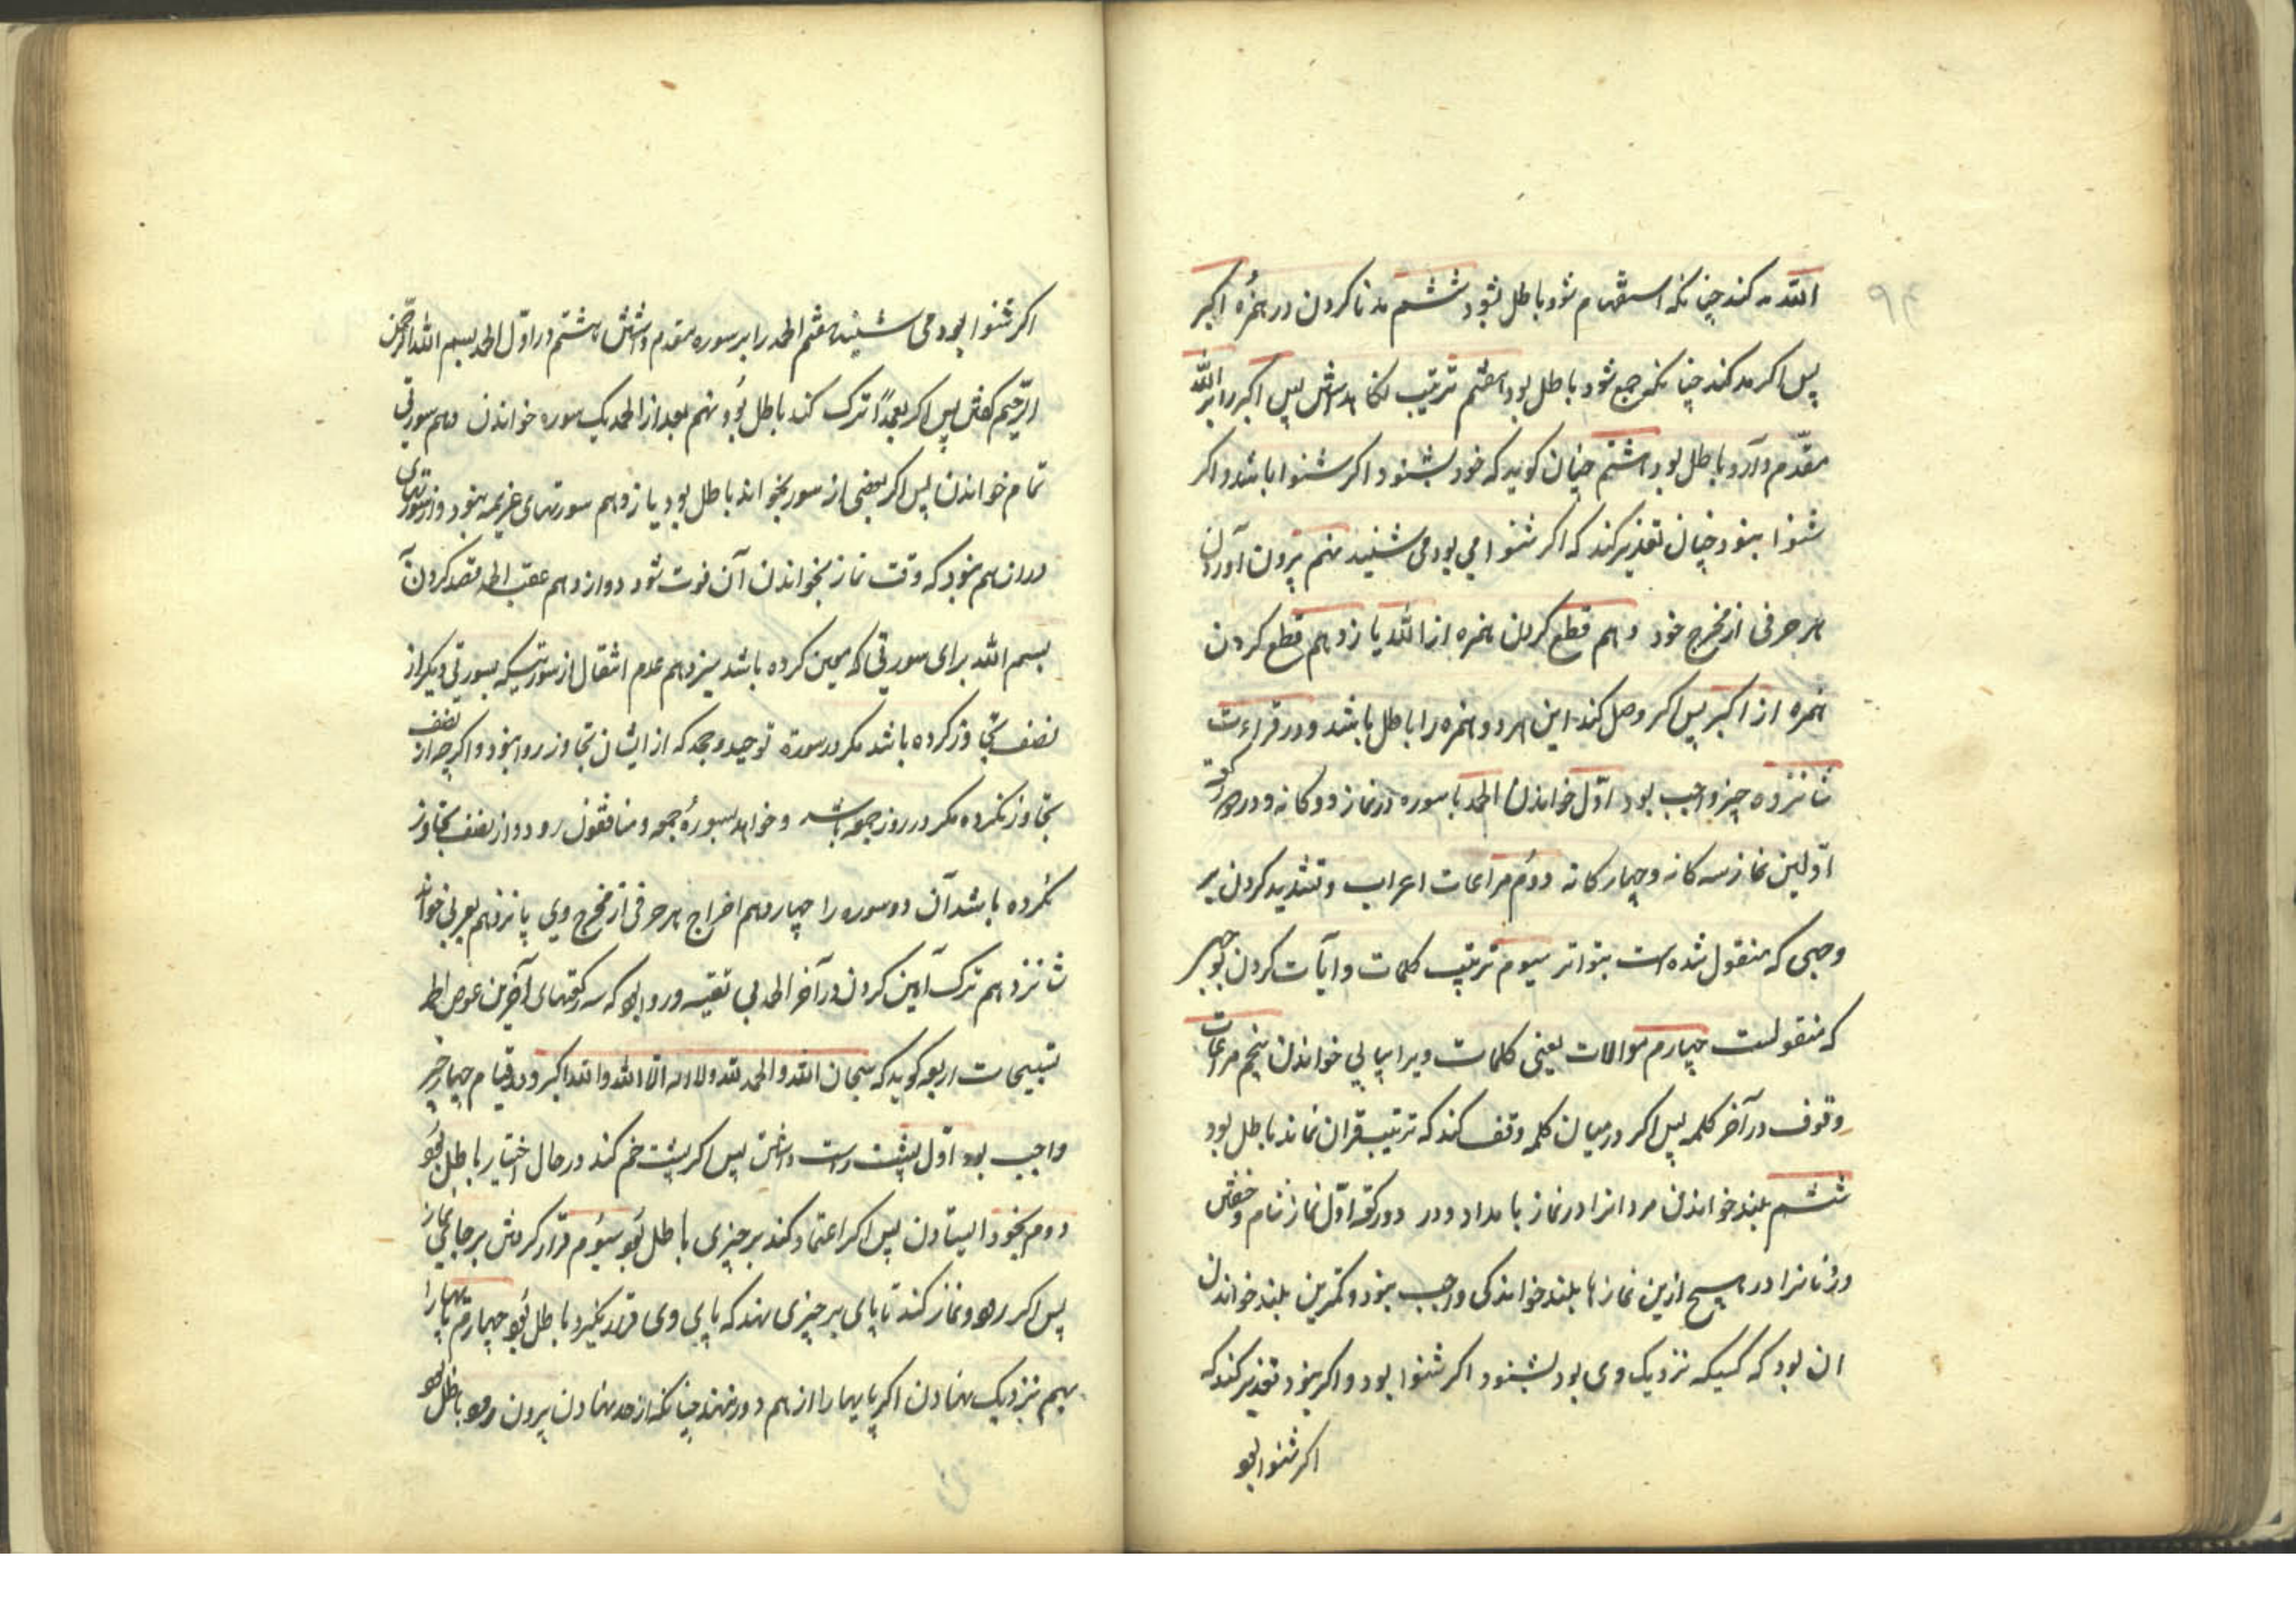 ۹۴
الله مد کند چنانکه استفهام شود باطل بود ششم مد نا کردن در همزهٔ اکبر
پس اکر مد کند چنانکه جمع شود باطل بود هفتم ترتیب نکاهداشتن پس اکبر را بر الله
مقدّم دارد باطل بود هشتم چنان کوید که خود بشنود اکر شنوا باشد و اکر
شنوا نبود چنان تقدیر کند که اکر شنوا می بود می شنید نهم بیرون آوردن
هر حرفی از مخرج خود دهم قطع کردن همزه از الله یازدهم قطع کردن
همزه از اکبر پس اکر وصل کند این هر دو همزه را باطل باشد و در قراءت
شانزده چیز واجب بود اوّل خواندن الحمد با سوره در نماز دوکانه و در هر دو رکعت
اوّلین نماز سه کانه و چهارکانه دوم مراعات اعراب و تشدید کردن بر
وجهی که منقول شده است بتواتر سیوم ترتیب کلمات و آیات کردن بر وجهی
که منقولست چهارم موالات یعنی کلمات ویرا پیاپی خواندن پنجم مراعات
وقوف در آخر کلمه پس اکر در میان کلمه وقف کند که ترتیب قران نماند باطل بود
ششم بلند خواندن مردانرا در نماز بامداد و در دو رکعه اوّل نماز شام و خفتن
و زنانرا در هیچ ازین نمازها بلند خواندکی واجب نبود و کمترین بلند خواندن
ان بود که کسیکه نزدیک وی بود بشنود اکر شنوا بود و اکر نبود تقدیر کند که
اکر شنوا بود
اکر شنوا بود می شنید هفتم الحمد را بر سوره مقدم داشتن هشتم در اوّل الحمد بسم الله الرحمن
الرّحیم کفتن پس اکر بعمداً ترک کند باطل بود نهم بعد از الحمد یک سوره خواندن دهم سورتی
تمام خواندن پس اکر بعضی از سوره بخواند باطل بود یازدهم سورتهای عزیمه نبود و از سورتهای
دراز هم نبود که وقت نماز بخواندن آن فوت شود دوازدهم عقب الحمد قصد کردن آن
بسم الله برای سورتی که معین کرده باشد سیزدهم عدم انتقال از سورتیکه بسورتی دیکر از
نصف تجاوز کرده باشد مکر در سورة توحید و جحد که از ایشان تجاوز روا نبود و اکرچه از نصف
تجاوز نکرده مکر در روز جمعه باشد و خواهد بسورهٔ جمعه و منافقون رود و از نصف تجاوز
نکرده باشد آن دو سوره را چهاردهم اخراج هر حرفی از مخرج وی پانزدهم بعربی خواندن
شانزدهم ترک آمین کردن در آخر الحمد بی تقیه و روا بود که سه رکعتهای آخرین عوض الحمد
تسبیحات اربعه کوید که سبحان الله والحمد لله ولا اله الّا الله والله اکبر و در قیام چهار چیز
واجب بود اوّل پشت راست داشتن پس اکر پشت خم کند در حال اختیار باطل بود
دوم بخود ایستادن پس اکر اعتماد کند بر چیزی باطل بود سیوم قرار کرفتن بر جای نماز
پس اکر رود و نماز کند تا پای بر چیزی نهد که پای وی قرار نکیرد باطل بود چهارم پایها را
بهم نزدیک نهادن اکر پایها را از هم دور نهد چنانکه از حد نهادن بیرون رود باطل بود